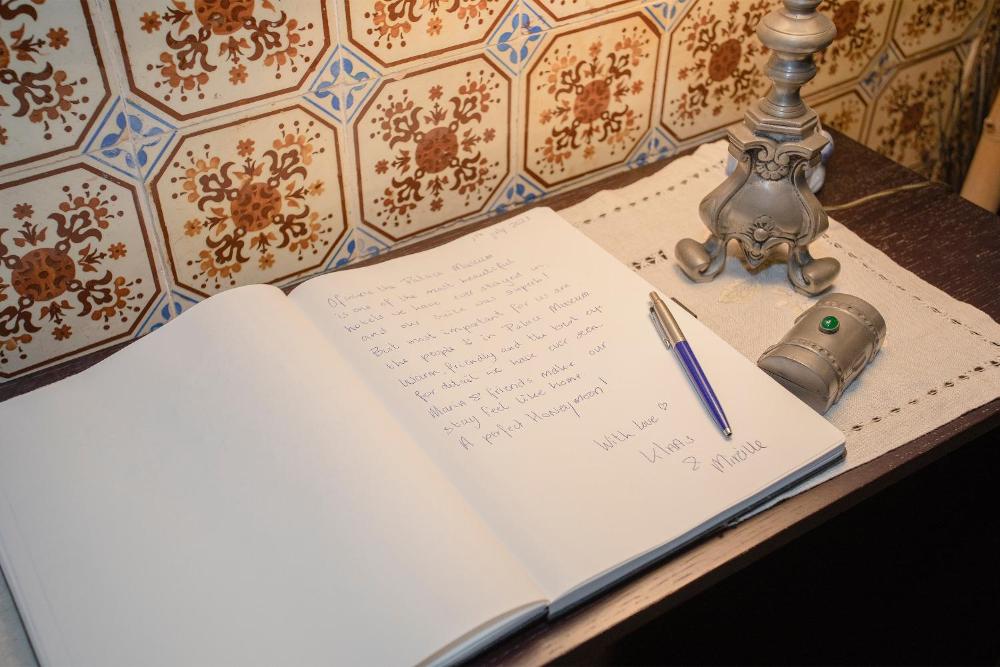 July 2021
the Palace Museum
is one of the most beautiful
hotels we have ever stayed in
and our suite was superb!
But most important for us are
the people in Palace Museum
Warm, friendly and the best eye
for detail we have ever seen.
Maria & friends make our
stay feel like home
A perfect Honeymoon!
With love ♡
Klaas
& Mireille